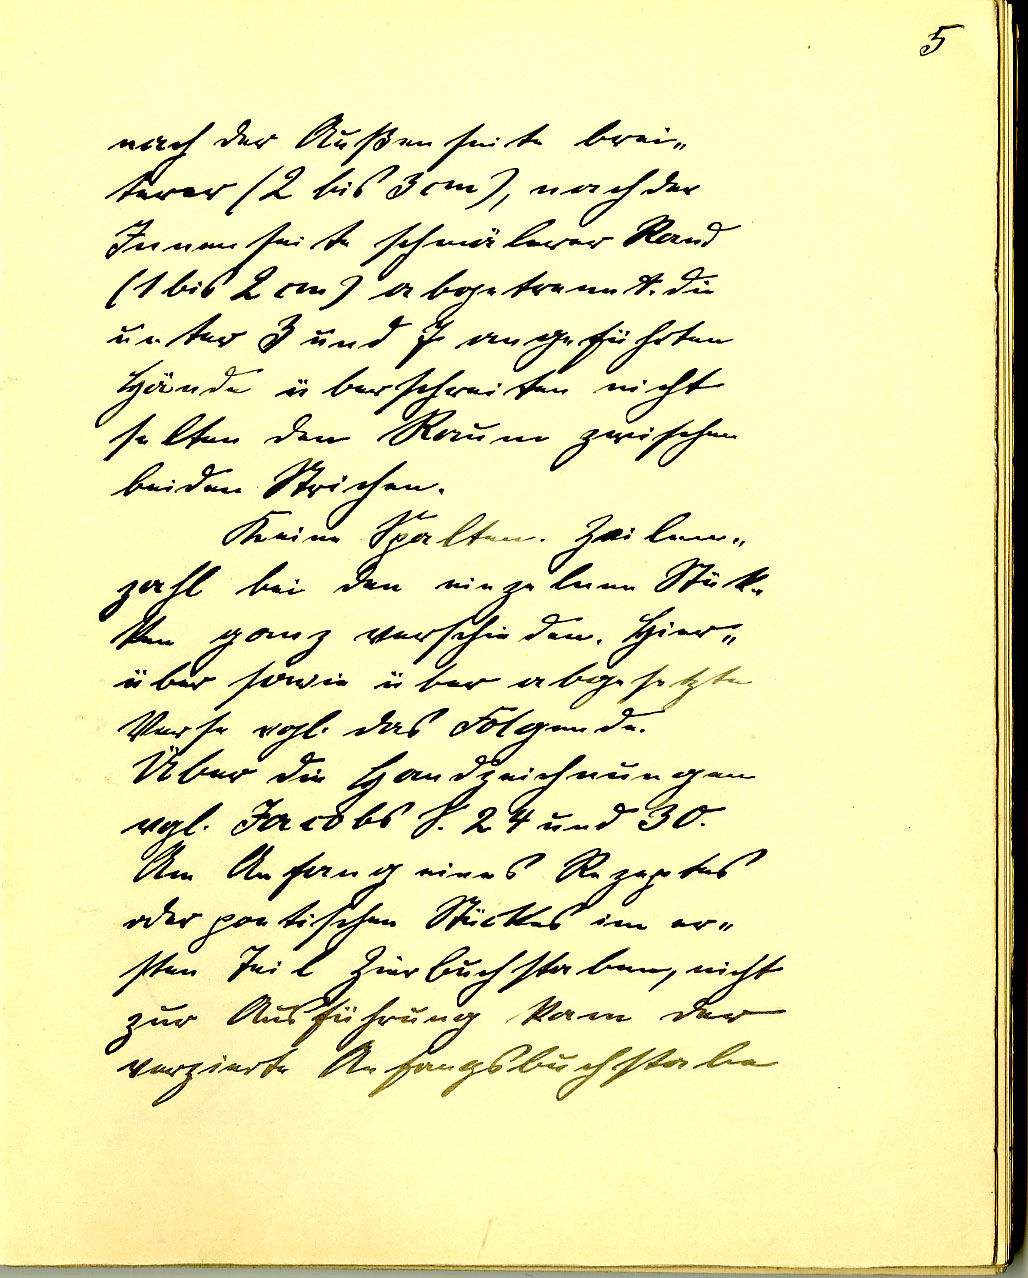 5
nach der Außenseite brei-
terer (2 bis 3 cm), nach der
Innenseite schmälerer Rand
(1 bis 2 cm) abgetrennt. die
unter 3 und 7 angeführten
Hände überschreiten nicht
selten den Raum zwischen
beiden Strichen.
Keine Spalten. Zeilen-
zahl bei den einzelnen Stük-
ken ganz verschieden. Hier-
über sowie über abgesetzte
Verse vgl. das Folgende.
Über die Handzeichnungen
vgl. Jacobs S. 24 und 30.
Am Anfang eines Rezeptes
oder poetischen Stückes im er-
sten Teil Zierbuchstaben, nicht
zur Ausführung kam der
verzierte Anfangsbuchstabe